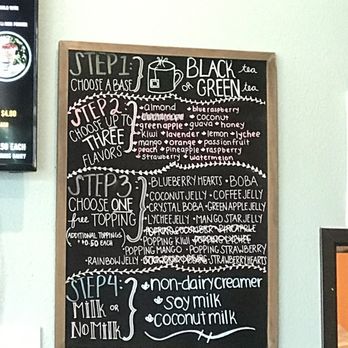 STEP 1:
CHOOSE A BASE
BLACK tea
OR
GREEN tea
STEP 2:
CHOOSE UP TO
THREE
FLAVORS
almond blueraspberry
coconut
green apple guava honey
kiwi lavender lemon lychee
mango orange passionfruit
peach pineapple raspberry
strawberry watermelon
STEP 3:
CHOOSE ONE
free TOPPING
(ADDITIONAL TOPPINGS
+0.50 EACH)
BLUEBERRY HEARTS · BOBA
COCONUT JELLY · COFFEE JELLY
CRYSTAL BOBA · GREEN APPLE JELLY
LYCHEE JELLY · MANGO STAR JELLY
POPPING KIWI
POPPING MANGO · POPPING STRAWBERRY
RAINBOW JELLY
STRAWBERRY HEARTS
STEP 4:
MILK OR
NO MILK
non-dairy creamer
soy milk
coconut milk
$4.00